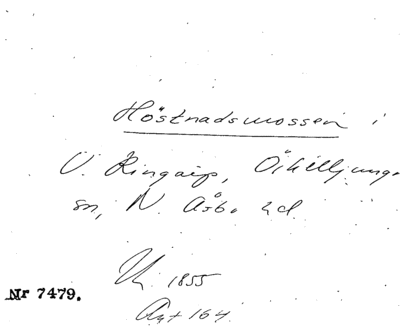 Höstnadsmossen i
V. Ringarp, Örkelljunga
sn, N. Åsbo hd
1855
Nr 7479.
Akt 164